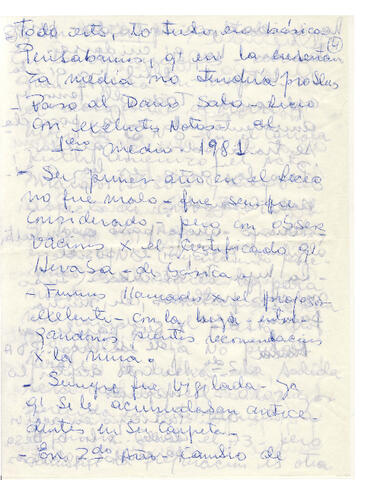 Todo esto, to Instancia básica (4)
Pensabamos, q' en la enseñan
za media no tendria problems
- Paso al Dario Salas - Liceo
con exelentes Notas al
1ero medio 1981
- Su primer año en el Liceo
no fue malo - fue siempre
considerado - pero con obser
vacions x el Certificado q'
llevaba - de basica
- Fuimos llamados x el profesor
exelente - con la hoja
x la niña.
- Siempre fue vigilada - ya
q' se le acumulaban antece-
dentes en su Carpeta -
- En 2do Año - Cambio de